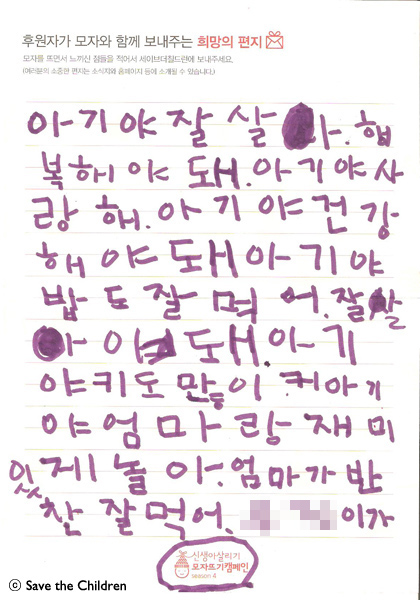 후원자가 모자와 함께 보내주는 희망의 편지
모자를 뜨면서 느끼신 점들을 적어서 세이브더칠드런에 보내주세요.
(여러분의 소중한 편지는 소식지와 홈페이지 등에 소개될 수 있습니다.)
아기야 잘 살아. 행
복해야 돼. 아기야 사
랑해. 아기야 건강
해야 돼 아기야
밥도 잘 먹어. 잘 살
아야 돼. 아기
야 키도 많이 커 아기
야 엄마랑 재미
있게 놀아. 엄마가 반
찬 잘 먹어. 이가
신생아살리기
모자뜨기캠페인
season 4
ⓒ Save the Children